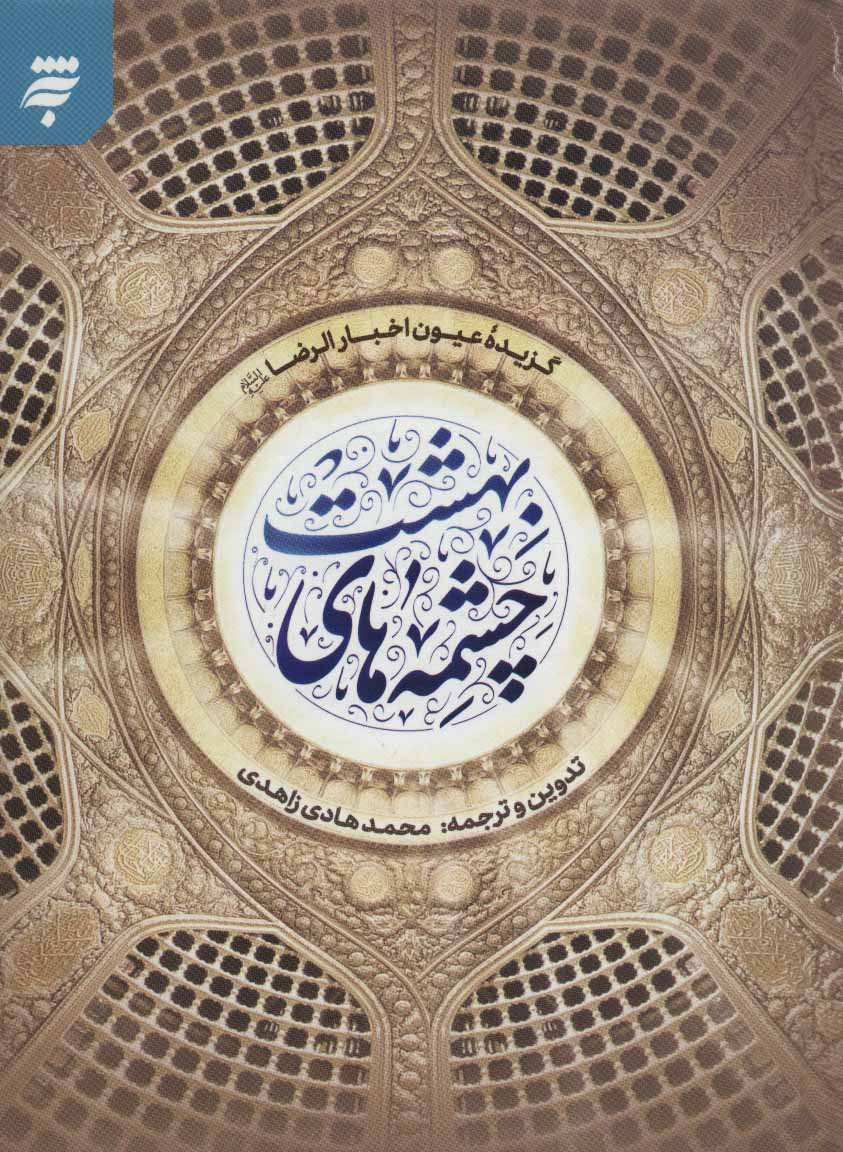 گزیدهٔ عیون اخبار الرضا علیه السّلام
چشمه‌های
بهشت
تدوین و ترجمه: محمدهادی زاهدی